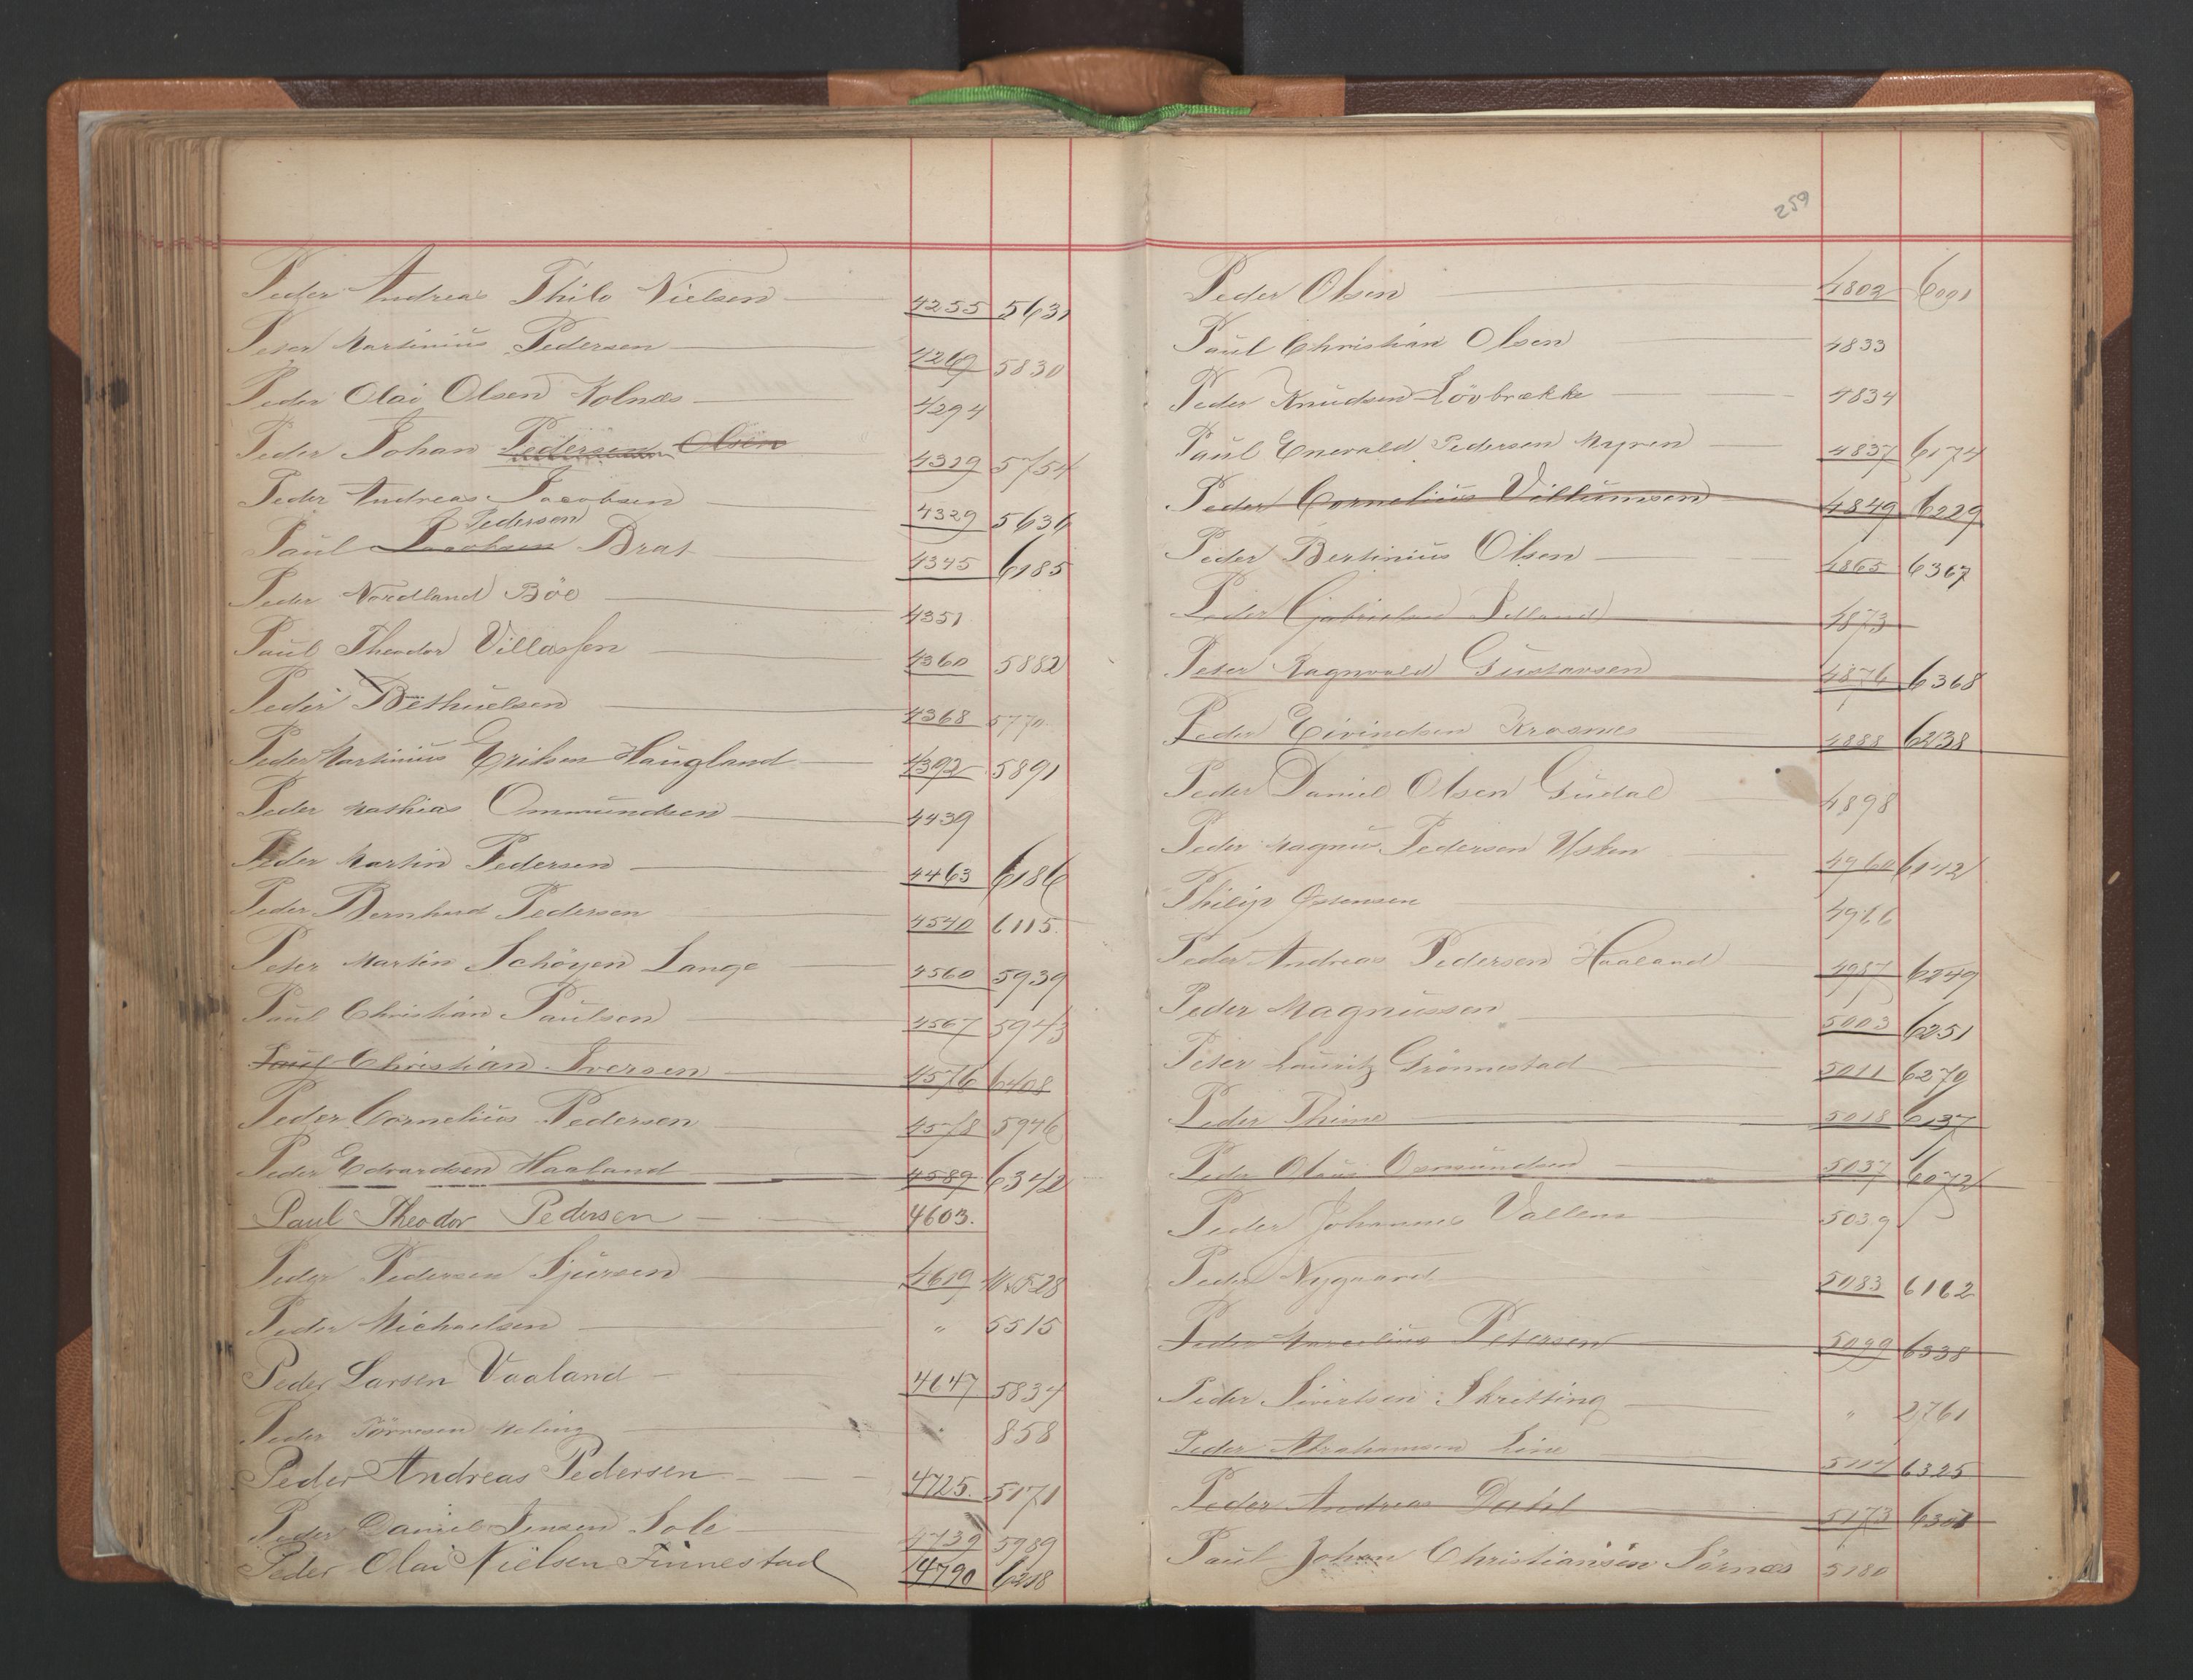 Peder Andreas Thilo Nielsen 4255 5631
Peter Martinius Pedersen 4269 5830
Peder Olai Olsen Kolnæs 4294
Peder Johan Pedersen Olsen 4319 5754
Peder Andreas Jacobsen 4329 5636
Pedersen
Paul Jacobsen Brat 4345 6185
Peder Nordland Böe 4351
Paul Theodor Villassen 4360 5882
Peder Bethuelsen 4368 5770
Peder Martinius Eriksen Haugland 4392 5891
Peder Mathias Ommundsen 4439
Peder Martin Pedersen 4463 6186
Peder Bernhard Pedersen 4540 6115
Peter Martin Schöyen Lange 4560 5939
Paul Christian Paulsen 4567 5943
Paul Christian Iversen 4576 6408
Peder Cornelius Pedersen 4578 5946
Peder Edvardsen Haaland 4589 6342
Paul Theodor Pedersen 4603.
Peder Pedersen Sjursen 4619
Peder Michaelsen " 5515
Peder Larsen Vaaland 4647 5834
Peder Törresen Meling 858
Peder Andreas Pedersen 4725. 5171
Peder Daniel Jensen Sole 4739 5989
Peder Olai Nielsen Finnestad 4790 6218
259
Peder Olsen 4802 6091
Paul Christian Olsen 4833
Peder Knudsen Lövbrække 4834
Paul Enevald Pedersen Myren 4837 6174
Peder Cornelius Villumsen 4849 6229
Peder Bertinius Olsen 4865 6367
Peder Gabrielsen Selland 4873
Peter Ragnvald Gustavsen 4876 6368
Peder Eivindsen Kraanes 4888 6238
Peder Daniel Olsen Gudal 4898
Peder Magnus Pedersen 4960 6142
Philip Østensen 4966
Peder Andreas Pedersen Haaland 4987 6249
Peder Magnussen 5003 6251
Peter Lauritz Grönnestad 5011 6270
Peder Thime 5018 6137
Peder Olaus Osmundsen 5037 6072
Peder Johannes Vallem 5039
Peder Nygaard 5083 6162
Peder Marcelius Petersen 5099 6338
Peder Sivertsen Skretting " 2761
Peder Abrahamsen Line 5114 6325
Peder Andreas Dahl 5173 6301
Paul Johan Christiansen Sörnæs 5180